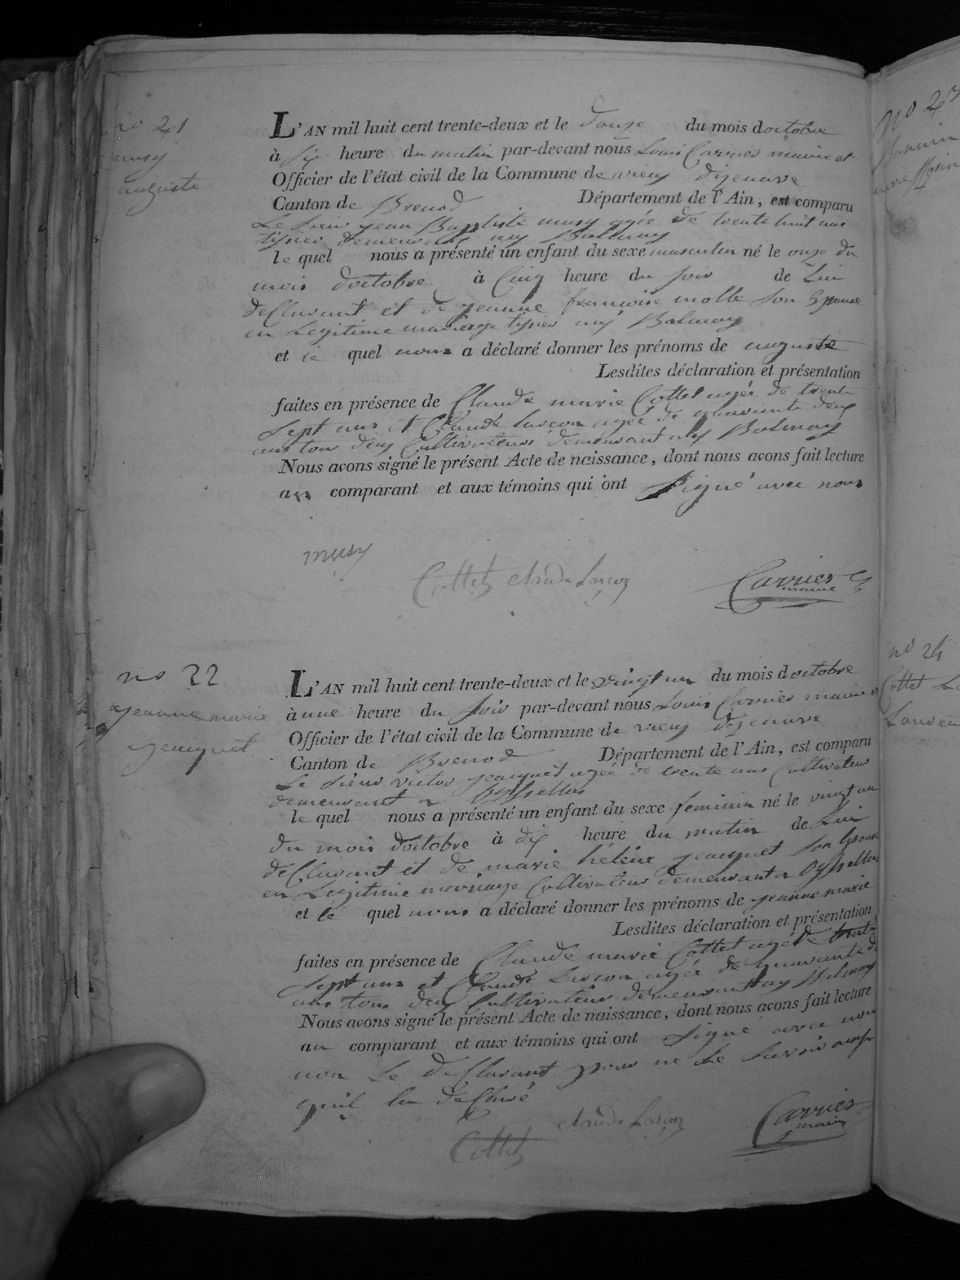 no 21
musy
auguste
L'AN mil huit cent trente-deux et le douze du mois doctobre
à six heure du matin par-devant nous Louis Carrier maire et
Officier de l'état civil de la Commune de vieu dizenave
Canton de Brenod Département de l'Ain, est comparu
Le Sieur jean Baptiste musy agée de trente huit ans
tisier demeurant au Balmay
le quel nous a présenté un enfant du sexe masculin né le onze du
mois doctobre à Cinq heure du soir de Lui
declarant et de jeanne françoise molle son Epouse
en Legitime mariage tisier au Balmay
et le quel nous a déclaré donner les prénoms de auguste
Lesdites déclaration et présentation
faites en présence de Claude marie Cottet agée de trente
sept ans et Claude Larcon agée de quarante deux
ans tou deux Cultivateurs demeurant au Balmay
Nous avons signé le présent Acte de naissance, dont nous avons fait lecture
au comparant et aux témoins qui ont signé avec nous
musy
Cottet claude Larcon
Carrier
maire
no 22
jeanne marie
jacquet
L'AN mil huit cent trente-deux et le vingt un du mois doctobre
à une heure du soir par-devant nous Louis Carrier maire et
Officier de l'état civil de la Commune de vieu dizenave
Canton de Brenod Département de l'Ain, est comparu
Le sieur victor jacquet agée de trente ans Cultivateur
demeurant a
le quel nous a présenté un enfant du sexe feminin né le vingt un
du mois doctobre à dix heure du matin de Lui
declarant et de marie hélène jacquet son Epouse
en Legitime mariage Cultivateur demeurant a
et le quel nous a déclaré donner les prénoms de jeanne marie
Lesdites déclaration et présentation
faites en présence de Claude marie Cottet agé de trente
sept ans et Claude Larcon agée de quarante d
ans tous deux Cultivateurs demeurant au Balmay
Nous avons signé le présent Acte de naissance, dont nous avons fait lecture
au comparant et aux témoins qui ont signé avec nou
non le declarant pour ne le savoir
quil la declaré
Cottet claude Larcon
Carrier
maire
no 23
no 24
Cottet